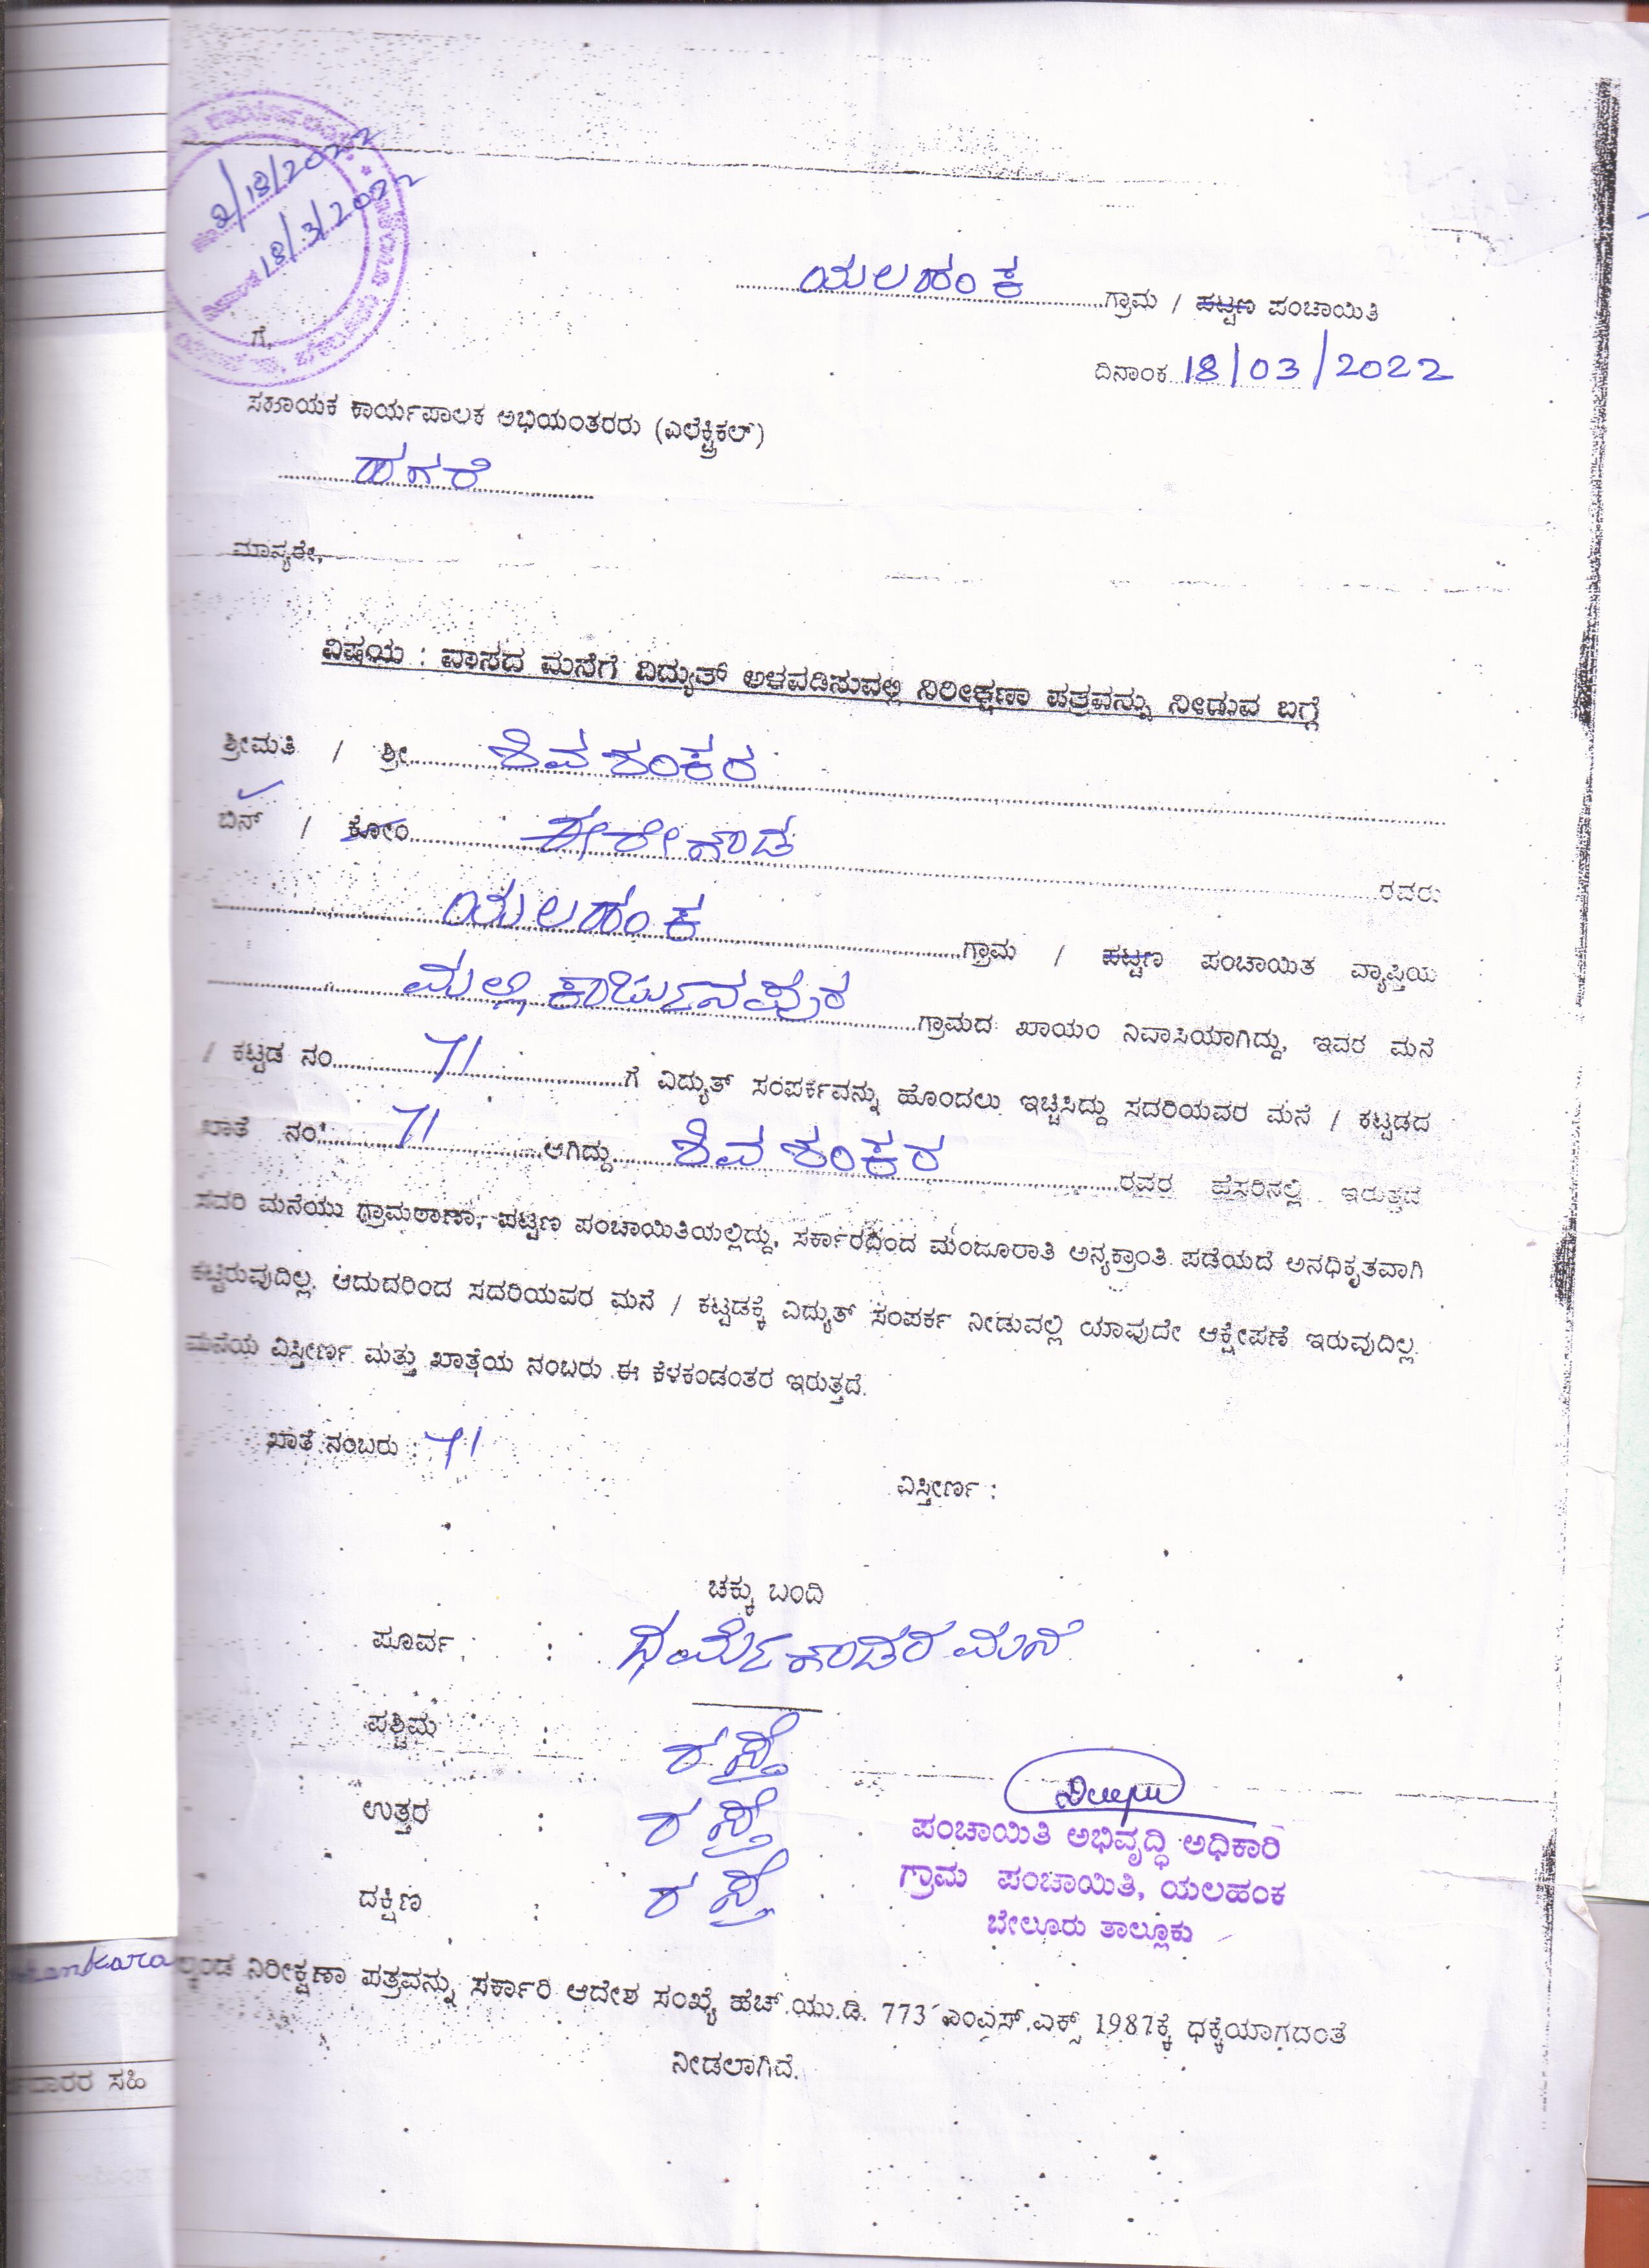 2/18/2022
18/3/2022
ಯಲಹಂಕ ಗ್ರಾಮ / ಪಟ್ಟಣ ಪಂಚಾಯಿತಿ
ದಿನಾಂಕ 18/03/2022
ಗೆ,
ಸಹಾಯಕ ಕಾರ್ಯಪಾಲಕ ಅಭಿಯಂತರರು (ಎಲೆಕ್ಟ್ರಿಕಲ್)
ಹಗರೆ
ಮಾನ್ಯರೇ,
ವಿಷಯ : ವಾಸದ ಮನೆಗೆ ವಿದ್ಯುತ್ ಅಳವಡಿಸುವಲ್ಲಿ ನಿರೀಕ್ಷಣಾ ಪತ್ರವನ್ನು ನೀಡುವ ಬಗ್ಗೆ
ಶ್ರೀಮತಿ / ಶ್ರೀ ಶಿವಶಂಕರ
ಬಿನ್ / ಕೋಂ ಈರೇಗೌಡ ರವರು
ಯಲಹಂಕ ಗ್ರಾಮ / ಪಟ್ಟಣ ಪಂಚಾಯಿತ ವ್ಯಾಪ್ತಿಯ
ಮಲ್ಲಿಕಾರ್ಜುನಪುರ ಗ್ರಾಮದ ಖಾಯಂ ನಿವಾಸಿಯಾಗಿದ್ದು, ಇವರ ಮನೆ
/ ಕಟ್ಟಡ ನಂ 71 ಗೆ ವಿದ್ಯುತ್ ಸಂಪರ್ಕವನ್ನು ಹೊಂದಲು ಇಚ್ಚಿಸಿದ್ದು ಸದರಿಯವರ ಮನೆ / ಕಟ್ಟಡದ
ಖಾತೆ ನಂ 71 ಆಗಿದ್ದು ಶಿವಶಂಕರ ರವರ ಹೆಸರಿನಲ್ಲಿ ಇರುತ್ತದೆ
ಸದರಿ ಮನೆಯು ಗ್ರಾಮಠಾಣಾ, ಪಟ್ಟಣ ಪಂಚಾಯಿತಿಯಲ್ಲಿದ್ದು, ಸರ್ಕಾರದಿಂದ ಮಂಜೂರಾತಿ ಅನ್ಯಕ್ರಾಂತಿ ಪಡೆಯದೆ ಅನಧಿಕೃತವಾಗಿ
ಕಟ್ಟಿರುವುದಿಲ್ಲ. ಆದುದರಿಂದ ಸದರಿಯವರ ಮನೆ / ಕಟ್ಟಡಕ್ಕೆ ವಿದ್ಯುತ್ ಸಂಪರ್ಕ ನೀಡುವಲ್ಲಿ ಯಾವುದೇ ಆಕ್ಷೇಪಣೆ ಇರುವುದಿಲ್ಲ.
ಮನೆಯ ವಿಸ್ತೀರ್ಣ ಮತ್ತು ಖಾತೆಯ ನಂಬರು ಈ ಕೆಳಕಂಡಂತರ ಇರುತ್ತದೆ.
ಖಾತೆ ನಂಬರು : 71
ವಿಸ್ತೀರ್ಣ :
ಚಕ್ಕು ಬಂದಿ
ಪೂರ್ವ : ಧರ್ಮೇಗೌಡರ ಮನೆ
ಪಶ್ಚಿಮ : ರಸ್ತೆ
ಉತ್ತರ : ರಸ್ತೆ
ದಕ್ಷಿಣ : ರಸ್ತೆ
ಪಂಚಾಯಿತಿ ಅಭಿವೃದ್ಧಿ ಅಧಿಕಾರಿ
ಗ್ರಾಮ ಪಂಚಾಯಿತಿ, ಯಲಹಂಕ
ಬೇಲೂರು ತಾಲ್ಲೂಕು
ನಿರೀಕ್ಷಣಾ ಪತ್ರವನ್ನು ಸರ್ಕಾರಿ ಆದೇಶ ಸಂಖ್ಯೆ ಹೆಚ್.ಯು.ಡಿ. 773 ಎಂಎಸ್.ಎಕ್ಸ್ 1987ಕ್ಕೆ ಧಕ್ಕೆಯಾಗದಂತೆ
ನೀಡಲಾಗಿದೆ.
ಸಹಿ